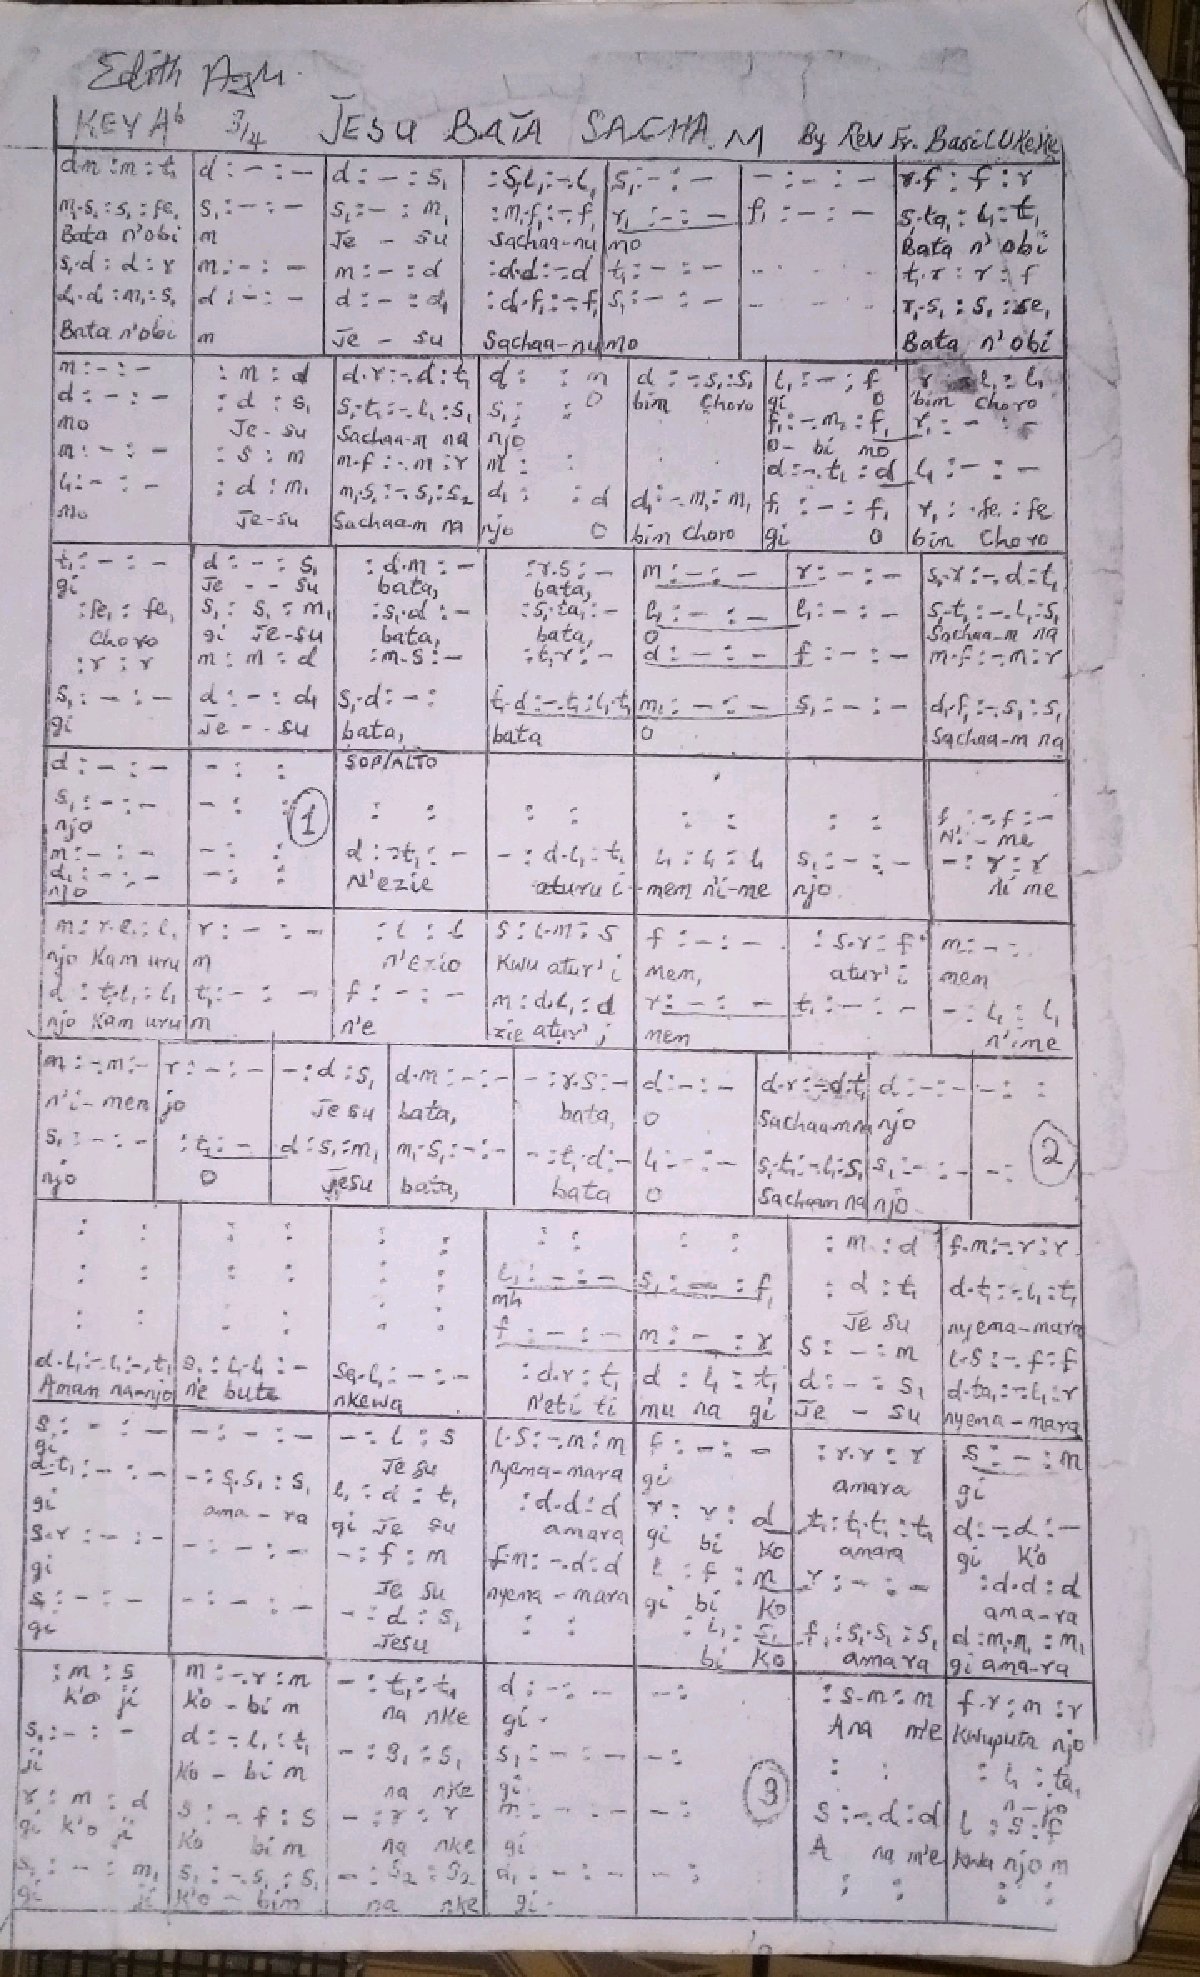 Edith Agu.
KEY Ab 3/4 JESU BATA SACHA M By Rev Fr. Basil Ukeke
d.m : m : t₁ | d : – : – | d : – : s₁ | : s₁.l₁ : -. l₁ | s₁ : – : – | – : – : – | r.f : f : r
m₁.s₁ : s₁ : fe₁ | s₁ : – : – | s₁ : – : m₁ | : m₁.f₁ : -. f₁ | r₁ : – : – | f₁ : – : – | s₁.ta₁ : l₁ : t₁
Bata n'obi | m | Je - su | Sachaa-nu | mo | | Bata n'obi
s₁.d : d : r | m : – : – | m : – : d | : d.d : -. d | t₁ : – : – | | t₁.r : r : f
d₁.d₁ : m₁ : s₁ | d : – : – | d : – : d₁ | : d.f₁ : -. f₁ | s₁ : – : – | | r₁.s₁ : s₁ : se₁
Bata n'obi | m | Je - su | Sachaa-nu | mo | | Bata n'obi
m : – : – | : m : d | d.r : -. d : t₁ | d : : m | d : -. s₁ : s₁ | l₁ : – : f | r : l₁ : l₁
O | bim Choro | gi O | bim Choro
d : – : – | : d : s₁ | s₁.t₁ : -. l₁ : s₁ | s₁ : : | | f₁ : -. m₁ : f₁ | r₁ : – : –
mo | Je-su | Sachaa-m na | njo | | O- bi mo
m : – : – | : s : m | m.f : -. m : r | m : : | | d : -. t₁ : d | l₁ : – : –
l₁ : – : – | : d : m₁ | m₁.s₁ : -. s₁ : s₂ | d₁ : : d | d₁ : -. m₁ : m₁ | f₁ : – : f₁ | r₁ : -. fe₁ : fe
mo | Je-su | Sachaa-m na | njo O | bim Choro | gi O | bim Choro
t₁ : – : – | d : – : s₁ | : d.m : – | : r.s : – | m : – : – | r : – : – | s₁.r : -. d : t₁
gi | Je - - su | bata, | bata,
: fe₁ : fe₁ | s₁ : s₁ : m₁ | : s₁.d : – | : s₁.ta₁ : – | l₁ : – : – | l₁ : – : – | s₁.t₁ : -. l₁ : s₁
Choro | gi Je-su | bata, | bata, | O | | Sachaa-m na
: r : r | m : m : d | : m.s : – | : t₁.r : – | d : – : – | f : – : – | m.f : -. m : r
s₁ : – : – | d : – : d₁ | s₁.d : – : | t₁.d : -. t₁ : l₁.t₁ | m₁ : – : – | s₁ : – : – | d₁.f₁ : -. s₁ : s₁
gi | Je - - su | bata, | bata | O | | Sachaa-m na
d : – : – | – : : | SOP/ALTO
s₁ : – : – | – : : | : : | : : | : : | : : | f : -. f : –
njo | 1 | | | | | Ni - me
m : – : – | – : : | d : -. t₁ : – | – : d.l₁ : t₁ | l₁ : l₁ : l₁ | s₁ : – : – | – : r : r
d₁ : – : – | – : : | N'ezie | aturu i | -mem n'i-me | njo | ni me
njo
m : r.l₁ : l₁ | r : – : – | : l : l | s : l.m : s | f : – : – | : s.r : f | m : – :
njo Kam uru | m | n'ezio | Kwu atur'i | mem, | atur'i | mem
d : t₁.l₁ : l₁ | t₁ : – : – | f : – : – | m : d.l₁ : d | r : – : – | t₁ : – : – | – : l₁ : l₁
njo Kam uru | m | n'e | zie atur'i | men | | n'ime
m : -. m : – | r : – : – | – : d : s₁ | d.m : – : – | – : r.s : – | d : – : – | d.r : -. d : t₁ | d : – : – | – : :
n'i-men | jo | Jesu | bata, | bata, | O | Sachaamna | njo
s₁ : – : – | : t₁ : – | d : s₁ : m₁ | m₁.s₁ : – : – | – : t₁.d : – | l₁ : – : – | s₁.t₁ : -. l₁ : s₁ | s₁ : – : – | – : | 2
njo | O | Jesu | bata, | bata | O | Sachaam na | njo
: : | : : | : : | : : | : : | : m : d | f.m : -. r : r
: : | : : | : : | l₁ : – : – | s₁ : – : f₁ | : d : t₁ | d.t₁ : -. l₁ : t₁
mh | | Je su | nyema-mara
: : | : : | : : | f : – : – | m : – : r | s : – : m | l.s : -. f : f
d.l₁ : -. l₁ : -. t₁ | s₁ : l₁.l₁ : – | sa₁.l₁ : – : – | : d.r : t₁ | d : l₁ : t₁ | d : – : s₁ | d.ta₁ : -. l₁ : r
Amam na-njo | n'e bute | nkewa | n'eti ti | mu na gi | Je - su | nyema-mara
s : – : – | – : – : – | – : l : s | l.s : -. m : m | f : – : – | : r.r : r | s : – : m
gi | | Je su | nyema-mara | gi | amara | gi
d.t₁ : – : – | – : s₁.s₁ : s₁ | l₁ : d : t₁ | : d.d : d | r : r : d | t₁ : t₁.t₁ : t₁ | d : -. d : –
gi | ama-ra | gi Je su | amara | gi bi ko | amara | gi ko
s.r : – : – | – : – : – | – : f : m | f.m : -. d : d | l : f : m | r : – : – | : d.d : d
gi | | Je su | nyema-mara | gi bi ko | | ama-ra
s : – : – | – : – : – | – : d : s₁ | : : | : l₁ : s₁ | f₁ : s₁.s₁ : s₁ | d : m₁.m₁ : m₁
gi | | Jesu | | bi ko | amara | gi ama-ra
: m : s | m : -. r : m | – : t₁ : t₁ | d : – : – | – : | : s.m : m | f.r : m : r
k'o ji | ko - bi m | na nke | gi. | | Ana m'e | Kwuputa njo
s₁ : – : – | d : -. l₁ : t₁ | – : s₁ : s₁ | s₁ : – : – | – : | : : | : l₁ : ta₁
ji | ko - bi m | na nke | gi | 3 | | n-jo
r : m : d | s : -. f : s | – : r : r | m : – : – | – : | s : -. d : d | l : s : f
gi k'o ji | ko bi m | na nke | gi | | A na m'e | njo m
s₁ : – : m₁ | s₁ : -. s₁ : s₁ | – : s₂ : s₂ | d₁ : – : – | – : | : : | : :
gi ji | k'o - bim | na nke | gi.